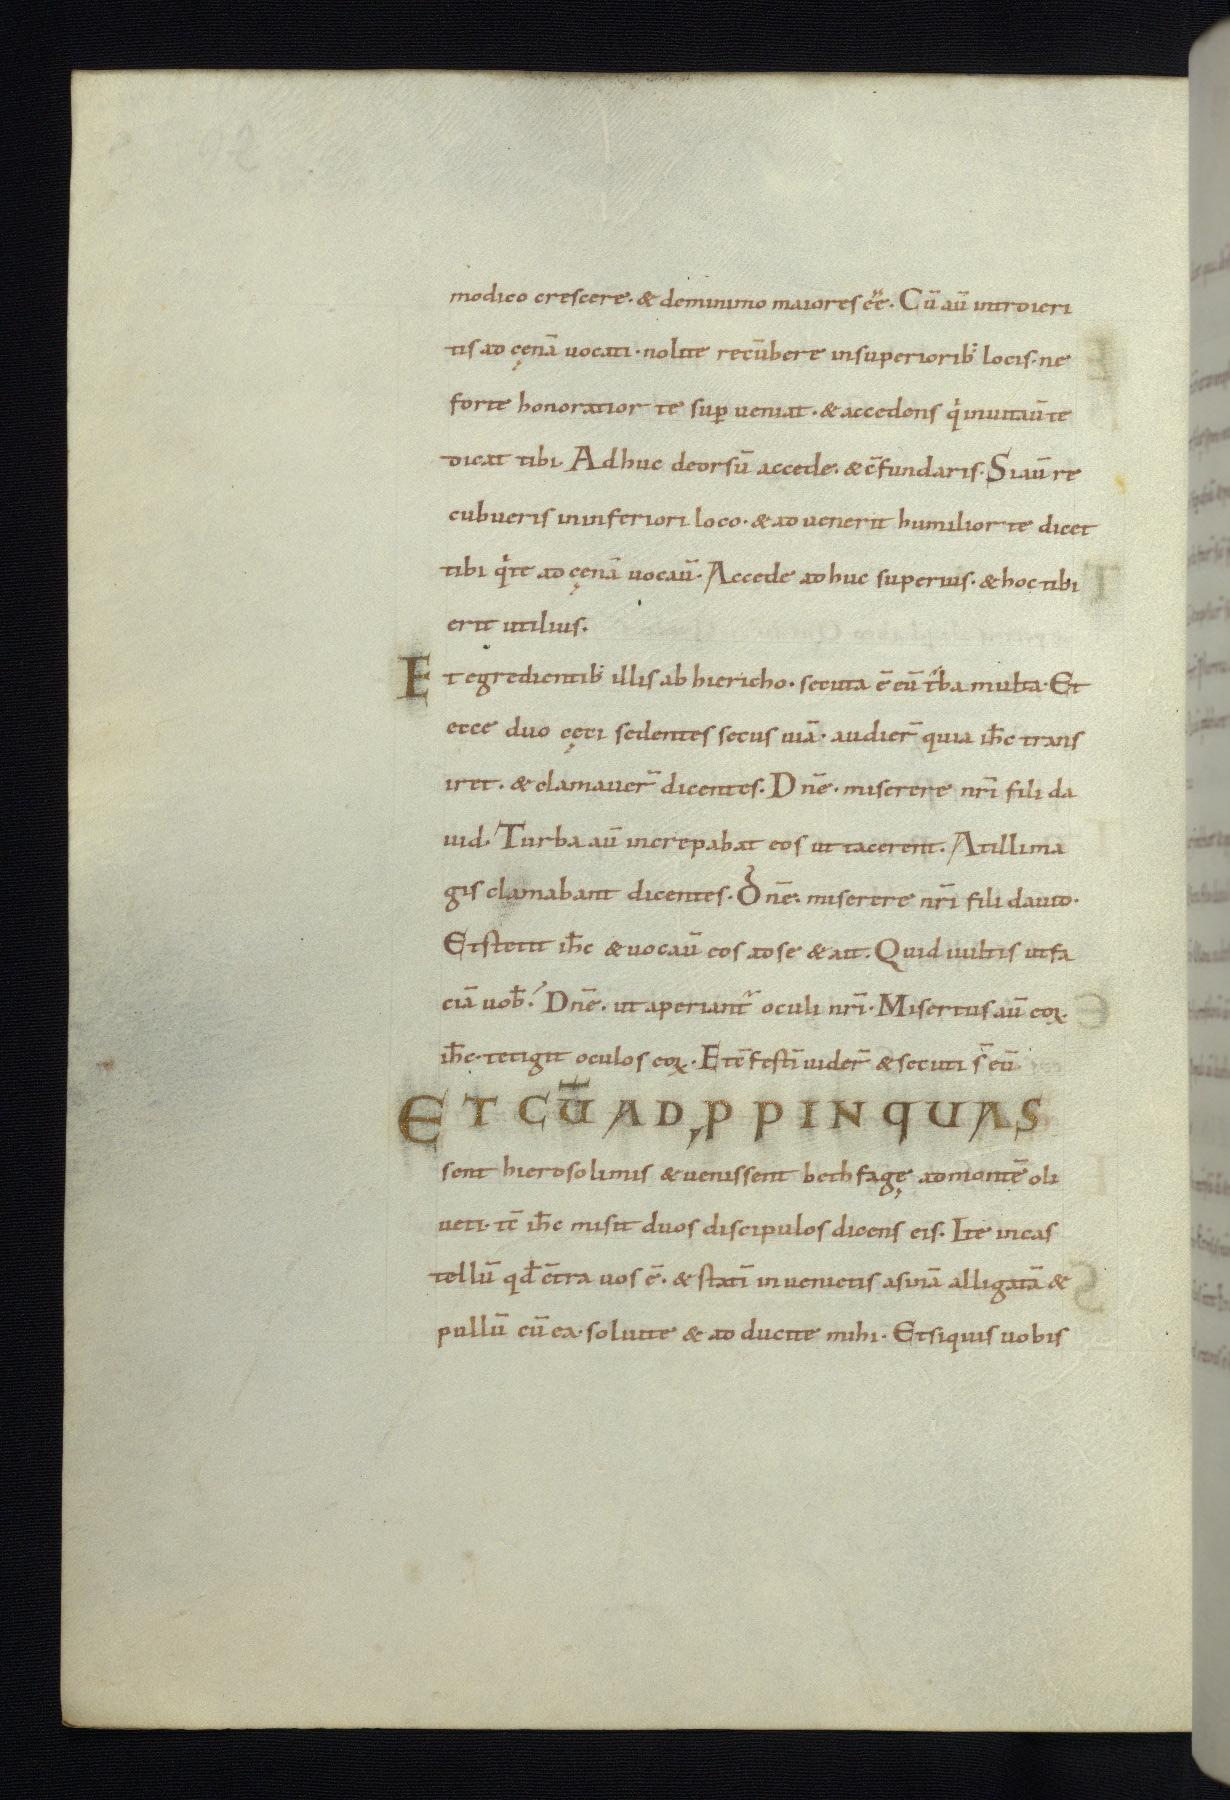 modico crescere. & deminimo maiores eē. Cū aū introieri
tis ad cęnā uocati. nolite recūbere insuperiorib; locis. ne
forte honoratior te suꝑ ueniat. & accedens qͥ inuitaū te
dicat tibi. Adhuc deorsū accede. & c̄fundaris. Si aū re
cubueris in inferiori loco. & ad uenerit humilior te dicet
tibi qͥ te ad cęnā uocaū. Accede adhuc superius. & hoc tibi
erit utilius.
Et egredientib; illis ab hiericho. secuta ē eū t̄ba multa. Et
ecce duo cęci sedentes secus uiā. audier̄ quia ih̄c trans
iret. & clamauer̄ dicentes. Dn̄e. miserere nr̄i fili da
uid. Turba aū increpabat eos ut tacerent. At illi ma
gis clamabant dicentes. Dn̄e. miserere nr̄i fili dauid.
Et stetit ih̄c & uocaū eos ad se & ait. Quid uultis ut fa
ciā uob̄? Dn̄e. ut aperiant᷑ oculi nr̄i. Misertus aū eoꝝ
ih̄c. tetigit oculos eoꝝ. Et c̄festī uider̄ & secuti s̄ eū
ET CŪ ADꝓPINQUAS
sent hierosolimis & uenissent bethfagę ad montē oli
ueti. tc̄ ih̄c misit duos discipulos dicens eis. Ite in cas
tellū qd̄ c̄tra uos ē. & statī inuenietis asinā alligatā &
pullū cū ea. soluite & ad ducite mihi. Et siquis uobis